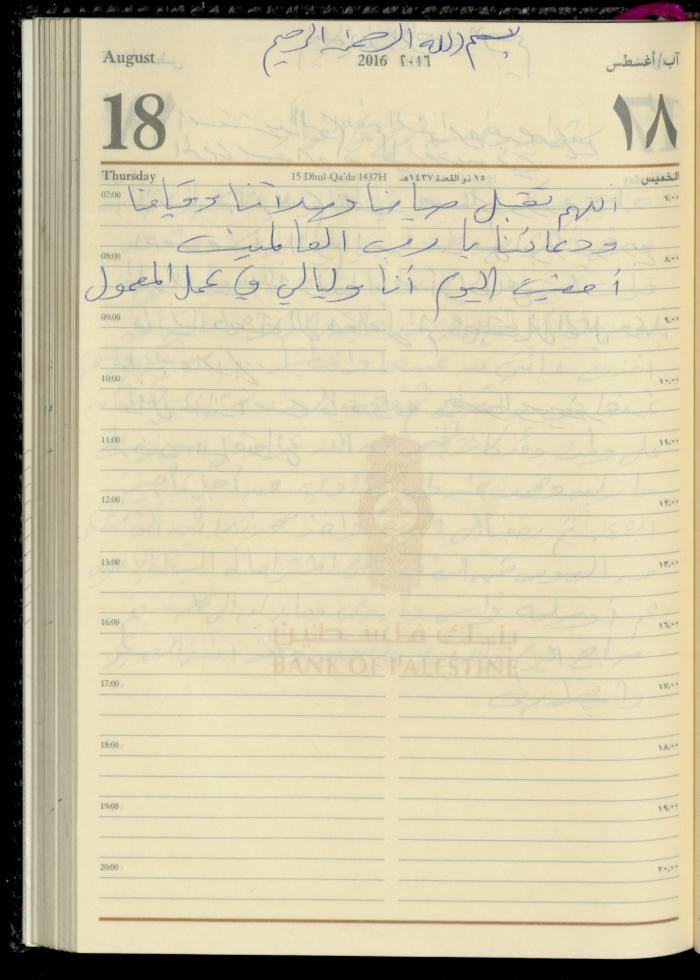 بسم الله الرحمن الرحيم
August 2016 ٢٠١٦ آب/أغسطس
18 ١٨
Thursday 15 Dhul-Qa'da 1437H ١٥ ذو القعدة ١٤٣٧هـ الخميس
اللهم تقبل صيامنا وصلاتنا وقيامنا
07:00 ٧,٠٠
ودعائنا يا رب العالمين
08:00 ٨,٠٠
أمضيت اليوم أنا وليالي في عمل المعمول
09:00 ٩,٠٠
10:00 ١٠,٠٠
11:00 ١١,٠٠
12:00 ١٢,٠٠
13:00 ١٣,٠٠
16:00 ١٦,٠٠
بنك فلسطين
BANK OF PALESTINE
17:00 ١٧,٠٠
18:00 ١٨,٠٠
19:00 ١٩,٠٠
20:00 ٢٠,٠٠